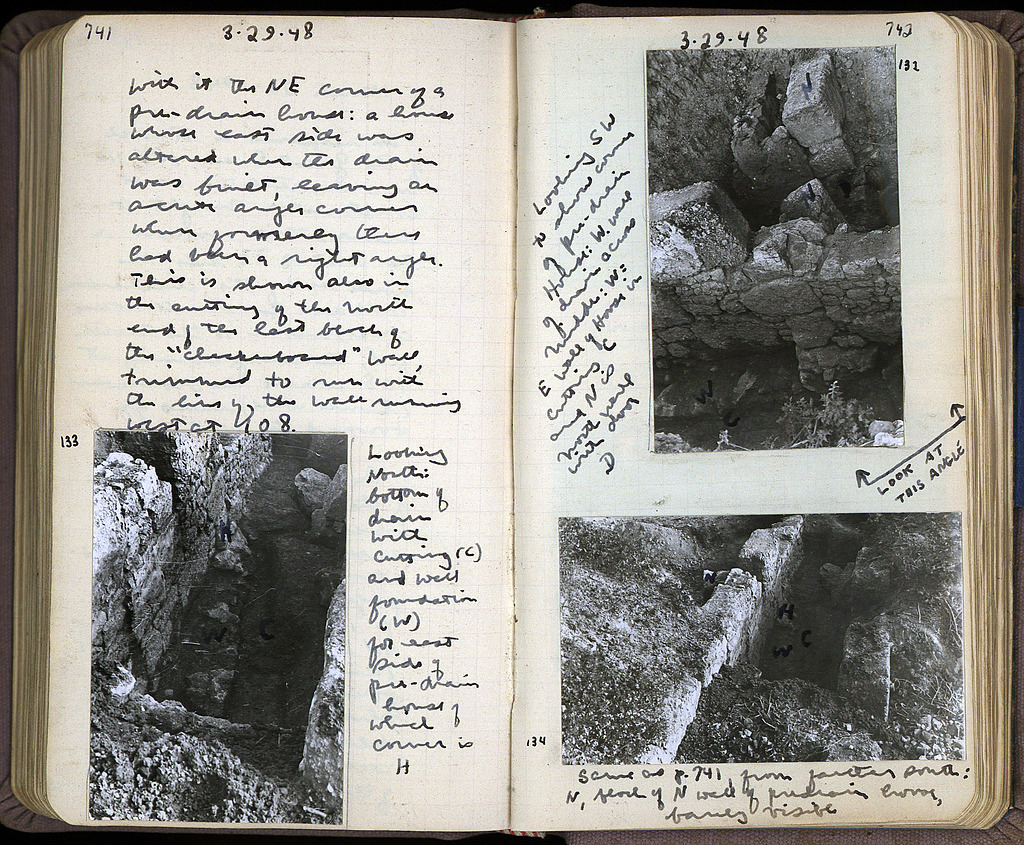 741
3·29·48
with it the NE corner of a
pre-drain house: a house
whose east side was
altered when the drain
was built, leaving an
acute angled corner
where formerly there
had been a right angle.
This is shown also in
the cutting of the north
end of the last block of
the "checkerboard" wall,
trimmed to run with
the line of the wall running
west at 408.
133
Looking
North:
bottom of
drain
with
cutting (C)
and wall
foundation
(W)
for east
side of
pre-drain
house of
which
corner is
H
N
W
C
3·29·48
742
132
Looking SW
to show corner
of pre-drain
House: W. wall
of drain across
middle: W =
E wall of House in
cutting C
and N is
north wall
with door
D
N
N
W
C
LOOK AT
THIS ANGLE
N
H
W
C
134
Same as p. 741, from farther south:
N, block of N wall of predrain house,
barely visible